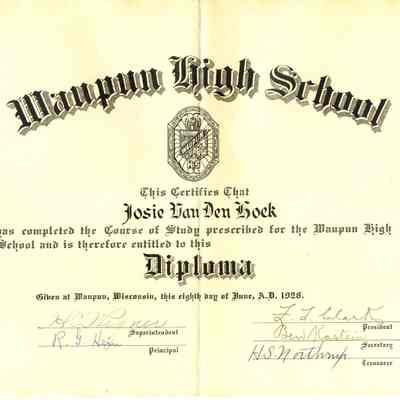 Waupun High School
This Certifies That
Josie Van Den Hoek
has completed the Course of Study prescribed for the Waupun High
School and is therefore entitled to this
Diploma
Given at Waupun, Wisconsin, this eighth day of June, A.D. 1928.
Superintendent
President
R. G.
Principal
Ben
Secretary
H.S. Northrup
Treasurer